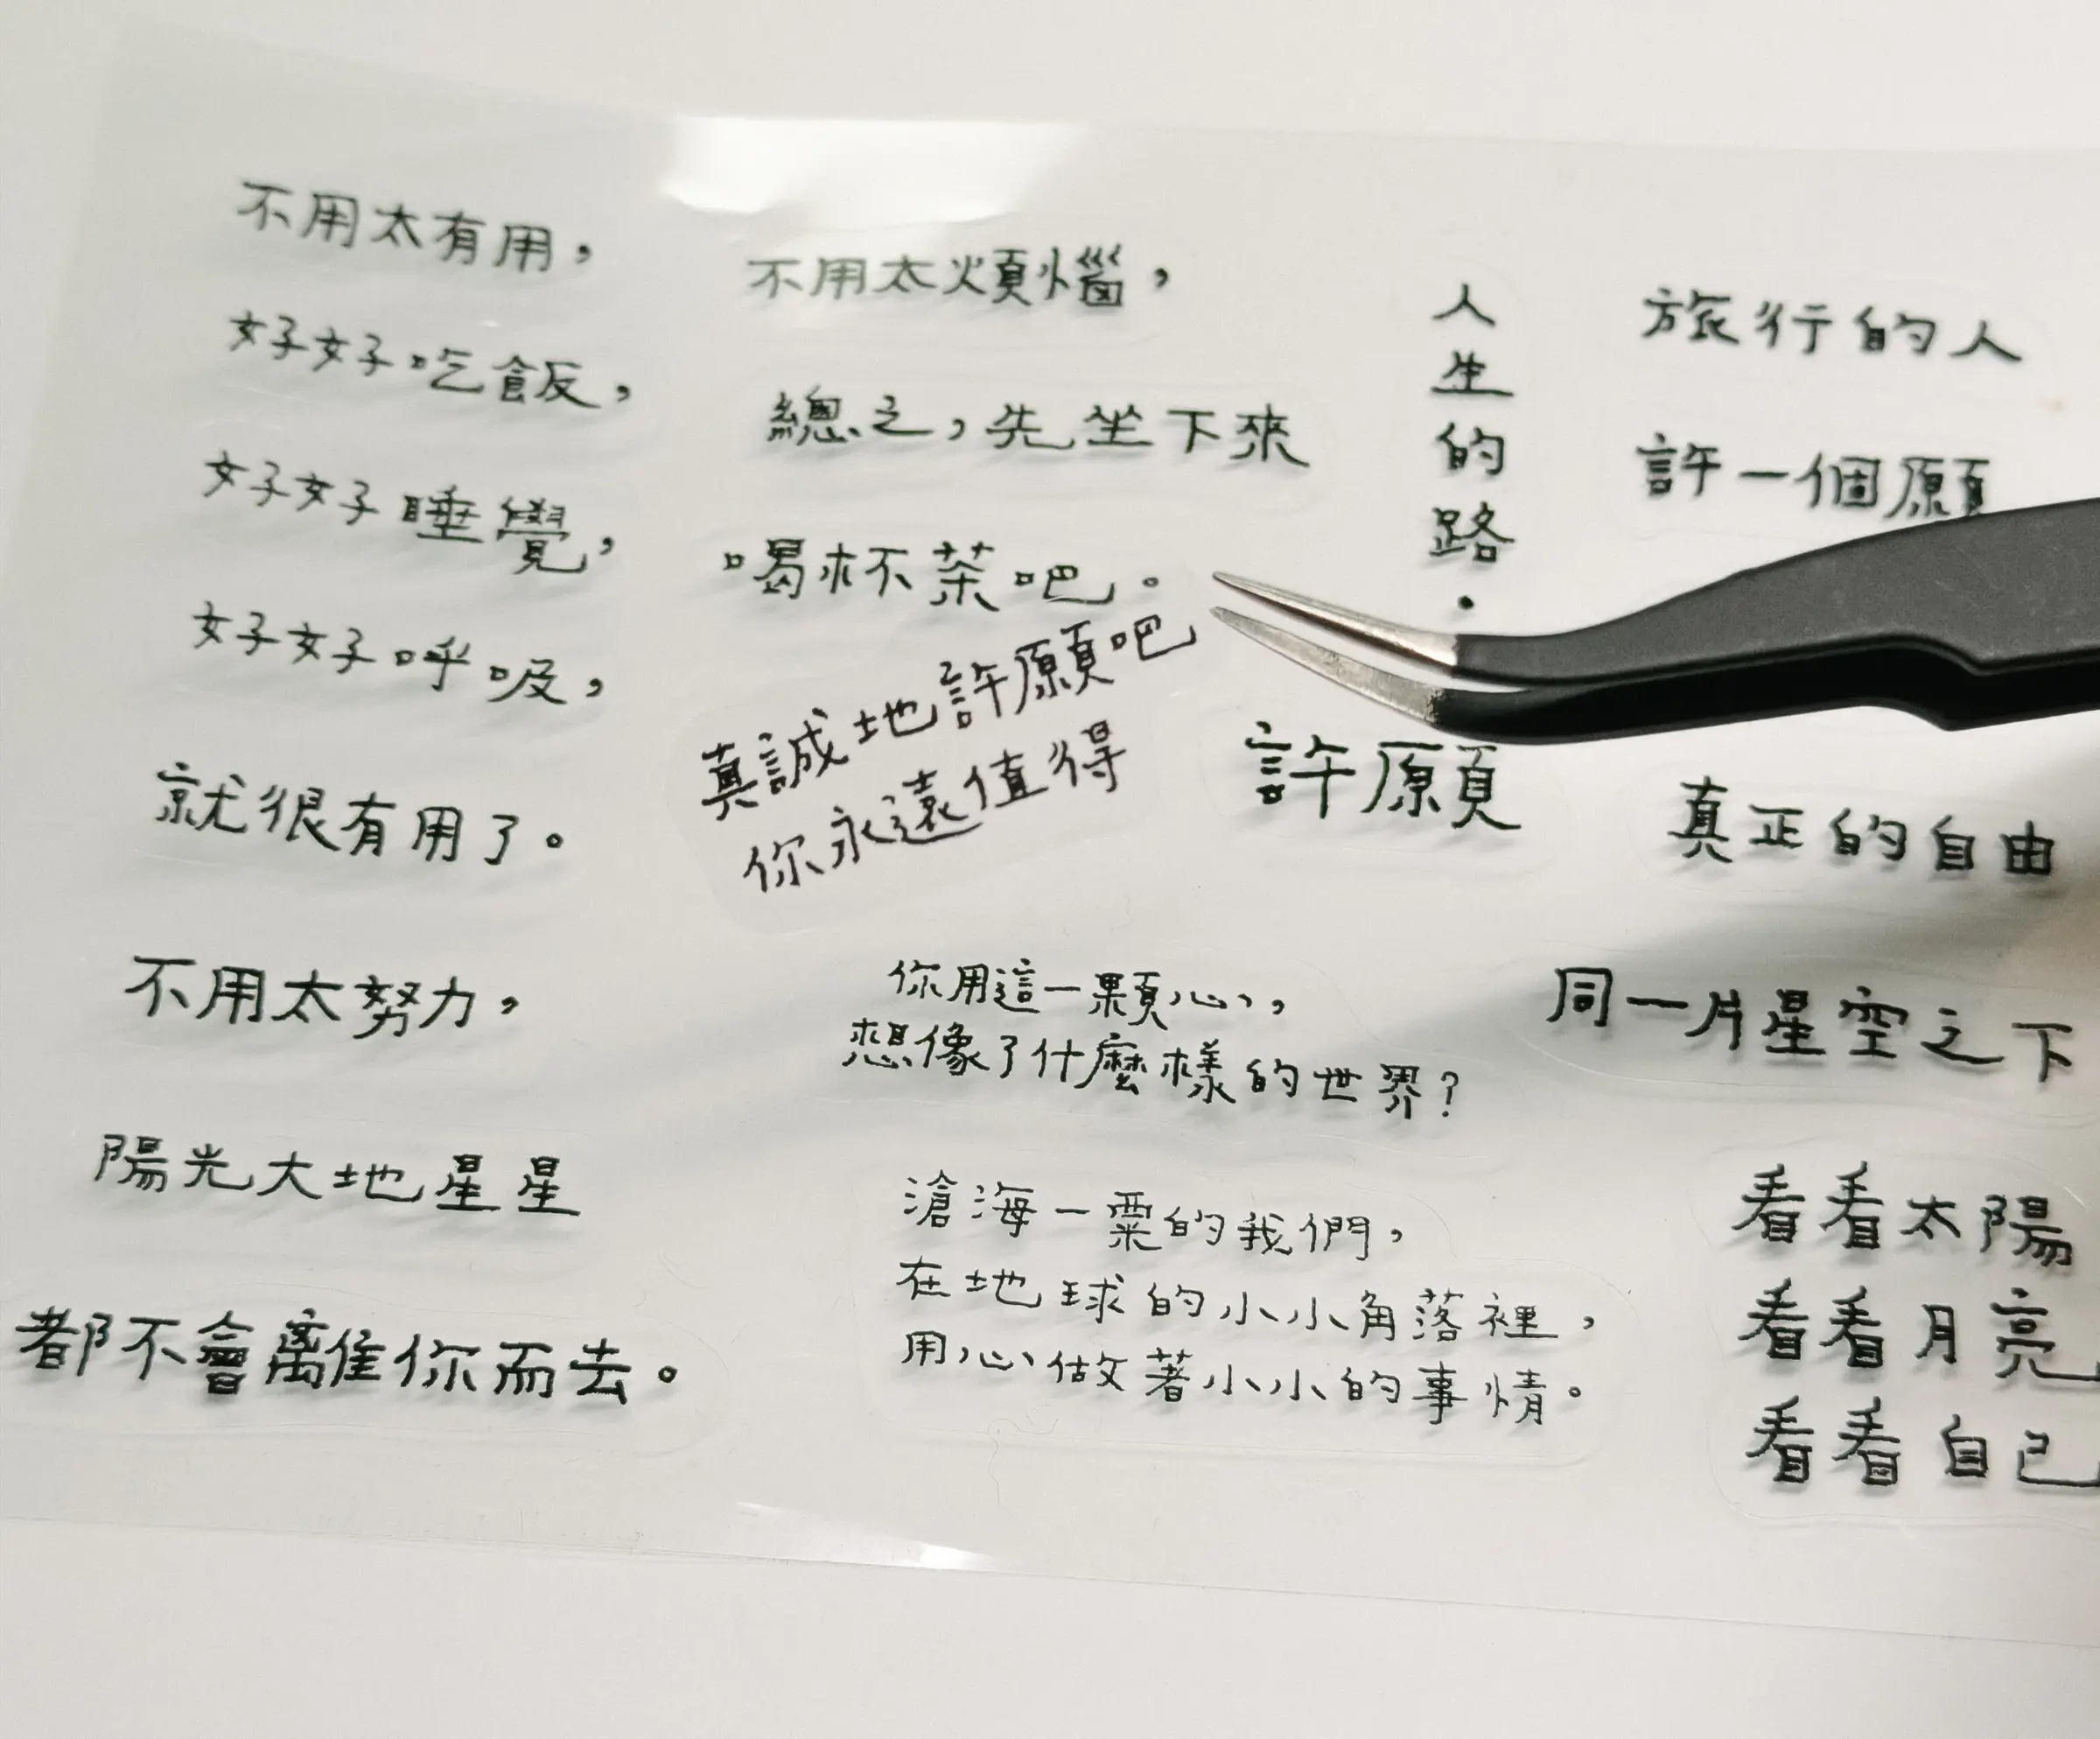 不用太有用，
好好吃飯，
好好睡覺，
好好呼吸，
就很有用了。
不用太努力，
陽光大地星星
都不會離你而去。
不用太煩惱，
總之，先坐下來
喝杯茶吧。
真誠地許願吧
你永遠值得
許願
你用這一顆心，
想像了什麼樣的世界？
滄海一粟的我們，
在地球的小小角落裡，
用心做著小小的事情。
人生的路．
旅行的人
許一個願
真正的自由
同一片星空之下
看看太陽
看看月亮
看看自己